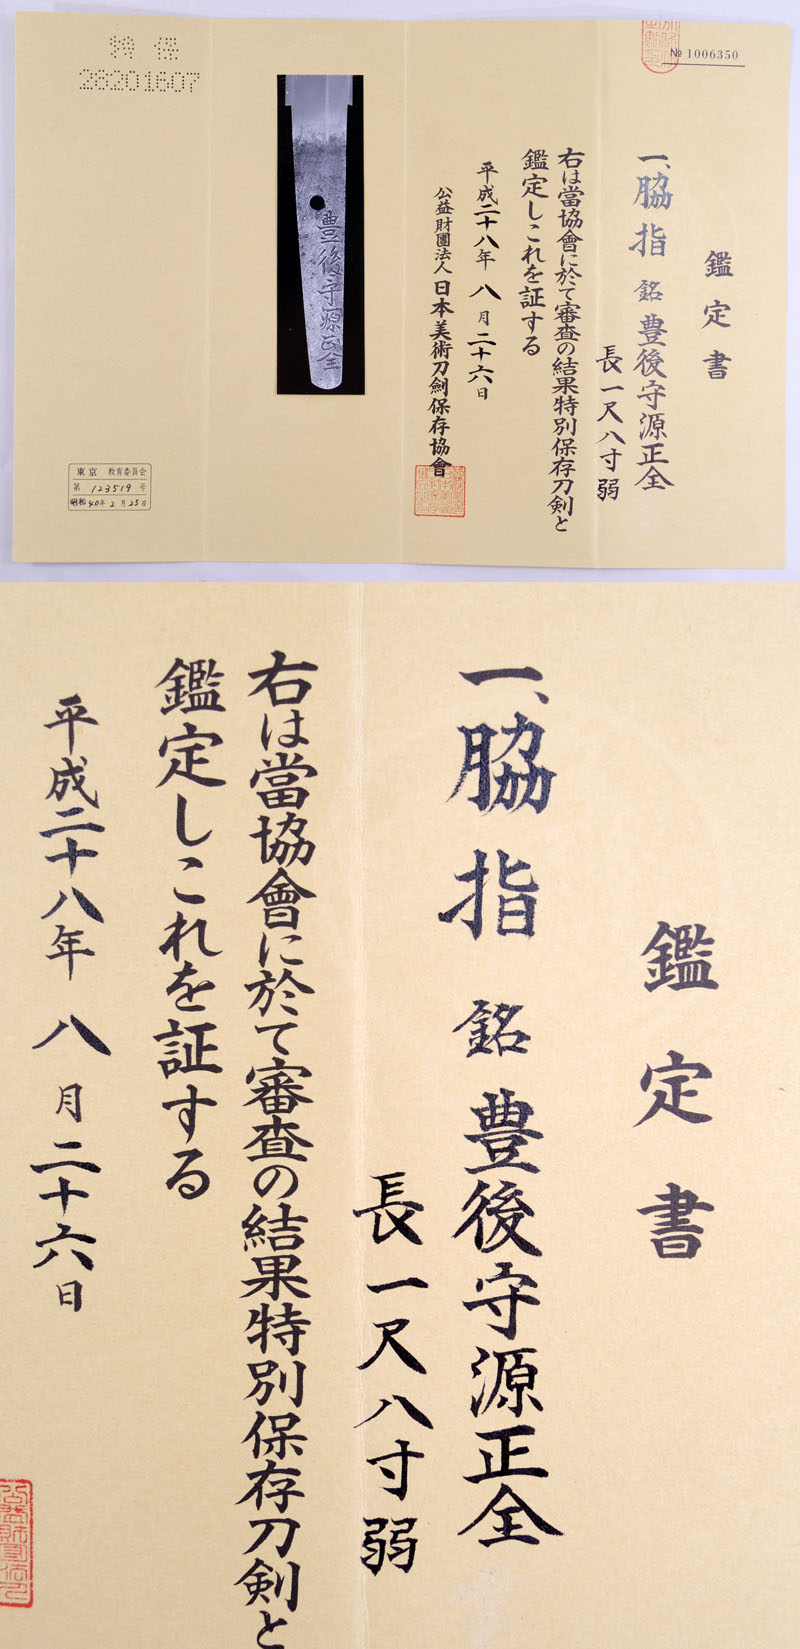 № 1006350
鑑定書
一、脇指 銘 豊後守源正全
長一尺八寸弱
右は當協會に於て審査の結果特別保存刀剣と
鑑定しこれを証する
平成二十八年 八 月二十六日
公益財團法人 日本美術刀劍保存協會
豊後守源正全
特 保
28201607
東京 教育委員会
第 123519 号
昭和 40年 2 月 25日
鑑定書
一、脇指 銘 豊後守源正全
長一尺八寸弱
右は當協會に於て審査の結果特別保存刀剣と
鑑定しこれを証する
平成二十八年 八 月二十六日